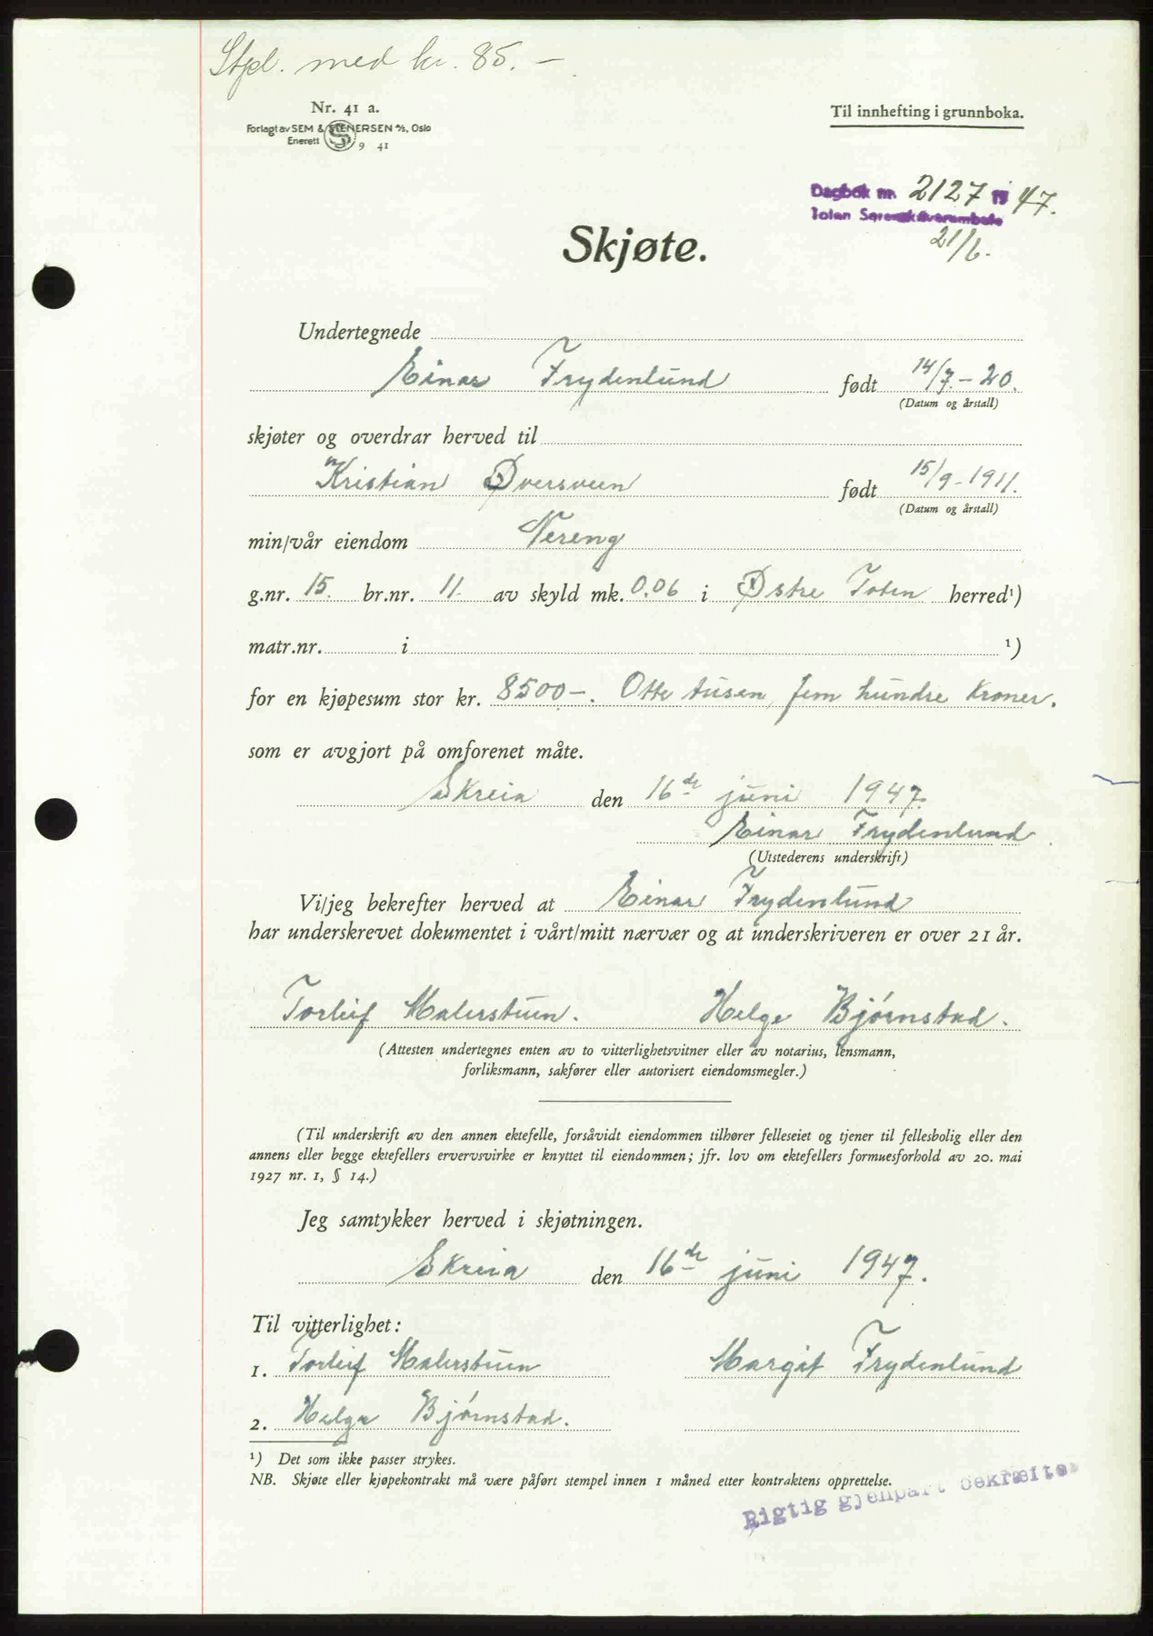 Stpl. med kr. 85.-
Nr. 41 a.
Forlagt av SEM & STENERSEN A/S, Oslo
Enerett 9 41
Til innhefting i grunnboka.
Dagbok nr. 2127 19 47.
Toten Sorenskriverembete
21/6.
Skjøte.
Undertegnede
Einar Frydenlund født 14/7.-20.
(Datum og årstall)
skjøter og overdrar herved til
Kristian Øversveen født 15/9-1911.
(Datum og årstall)
min/vår eiendom Nereng
g.nr. 15. br.nr. 11. av skyld mk. 0.06 i Østre Toten herred¹)
matr.nr. i ¹)
for en kjøpesum stor kr. 8500-. Otte tusen fem hundre kroner.
som er avgjort på omforenet måte.
Skreia den 16de juni 1947.
Einar Frydenlund
(Utstederens underskrift)
Vi/jeg bekrefter herved at Einar Frydenlund
har underskrevet dokumentet i vårt/mitt nærvær og at underskriveren er over 21 år.
Torleif Malerstuen. Helge Bjørnstad.
(Attesten undertegnes enten av to vitterlighetsvitner eller av notarius, lensmann,
forliksmann, sakfører eller autorisert eiendomsmegler.)
(Til underskrift av den annen ektefelle, forsåvidt eiendommen tilhører felleseiet og tjener til fellesbolig eller den
annens eller begge ektefellers ervervsvirke er knyttet til eiendommen; jfr. lov om ektefellers formuesforhold av 20. mai
1927 nr. 1, § 14.)
Jeg samtykker herved i skjøtningen.
Skreia den 16de juni 1947.
Til vitterlighet:
1. Torleif Malerstuen Margit Frydenlund
2. Helge Bjørnstad.
¹) Det som ikke passer strykes.
NB. Skjøte eller kjøpekontrakt må være påført stempel innen 1 måned etter kontraktens opprettelse.
Rigtig gjenpart bekræftes